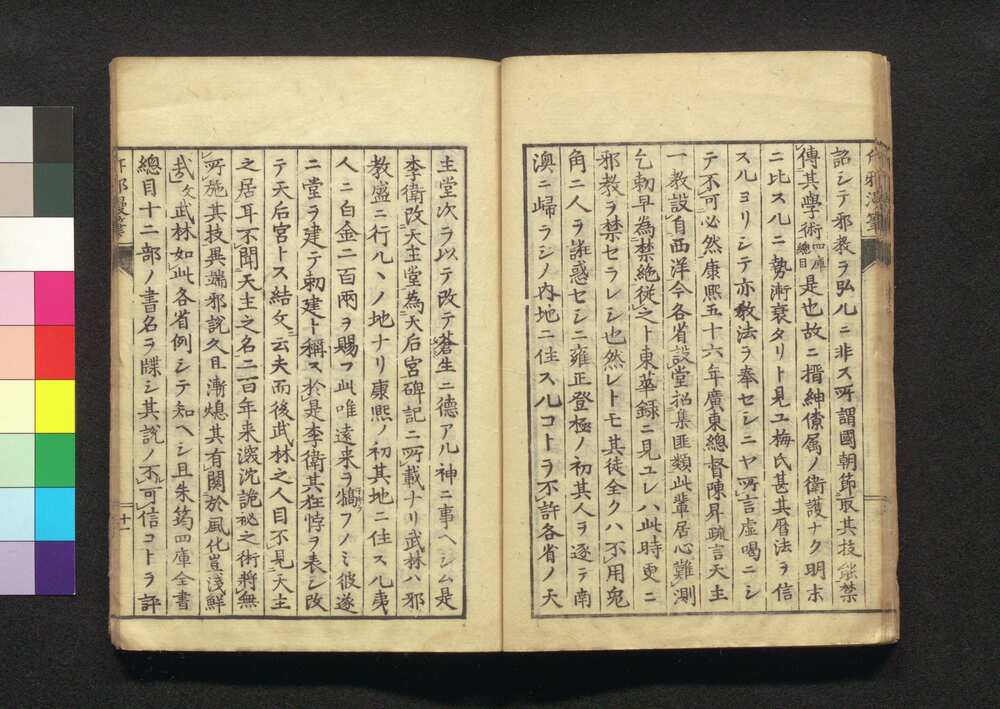 詔シテ邪教ヲ弘ルニ非ス所謂國朝節取其技能禁
傳其學術四庫總目是也故ニ搢紳僚属ノ衛護ナク明末
ニ比スルニ勢漸衰タリト見ユ梅氏甚其暦法ヲ信
スルヨリシテ亦教法ヲ奉セシニヤ所言虚喝ニシ
テ不可必然康熙五十六年廣東總督陳昴疏言天主
一教設自西洋今各省設堂招集匪類此輩居心難測
乞勅早為禁絶従之ト東華録ニ見ユレハ此時更ニ
邪教ヲ禁セラレシ也然レトモ其徒全クハ不用兜
角ニ人ヲ誑惑セシニ雍正登極ノ初其人ヲ逐テ南
澳ニ歸ラシノ内地ニ住スルコトヲ不許各省ノ天
主堂次ヲ以テ改テ蒼生ニ德アル神ニ事ヘシム是
李衛改天主堂為天后宮碑記ニ所載ナリ武林ハ邪
教盛ニ行ルヽノ地ナリ康熙ノ初其地ニ住スル夷
人ニ白金二百兩ヲ賜フ此唯遠来ヲ犒フノミ彼遂
ニ堂ヲ建テ勅建ト稱ス於是李衛其狂悖ヲ表シ改
テ天后宮トス結文云夫而後武林之人目不見天主
之居耳不聞天主之名二百年来滾沈詭祕之術將無
所施其技異端邪説久且漸熄其有關於風化豈淺鮮
哉文武林如此各省例シテ知ヘシ且朱筠四庫全書
總目十二部ノ書名ヲ牒シ其説ノ不可信コトヲ評
十一